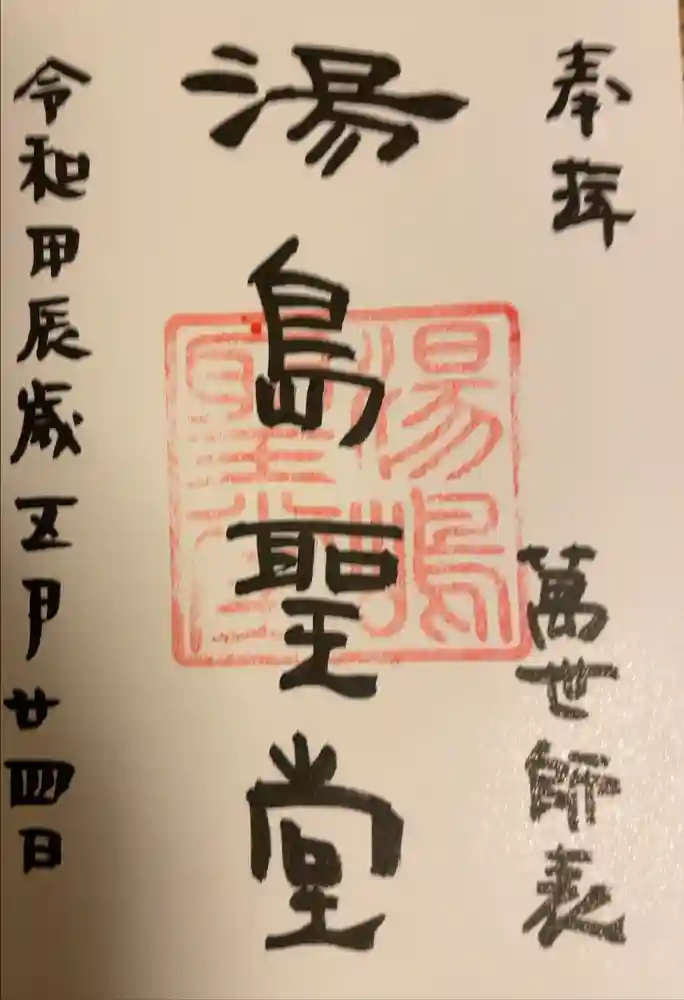 奉拜
萬世師表
湯島聖堂
湯島聖堂
令和甲辰歳五月廿四日